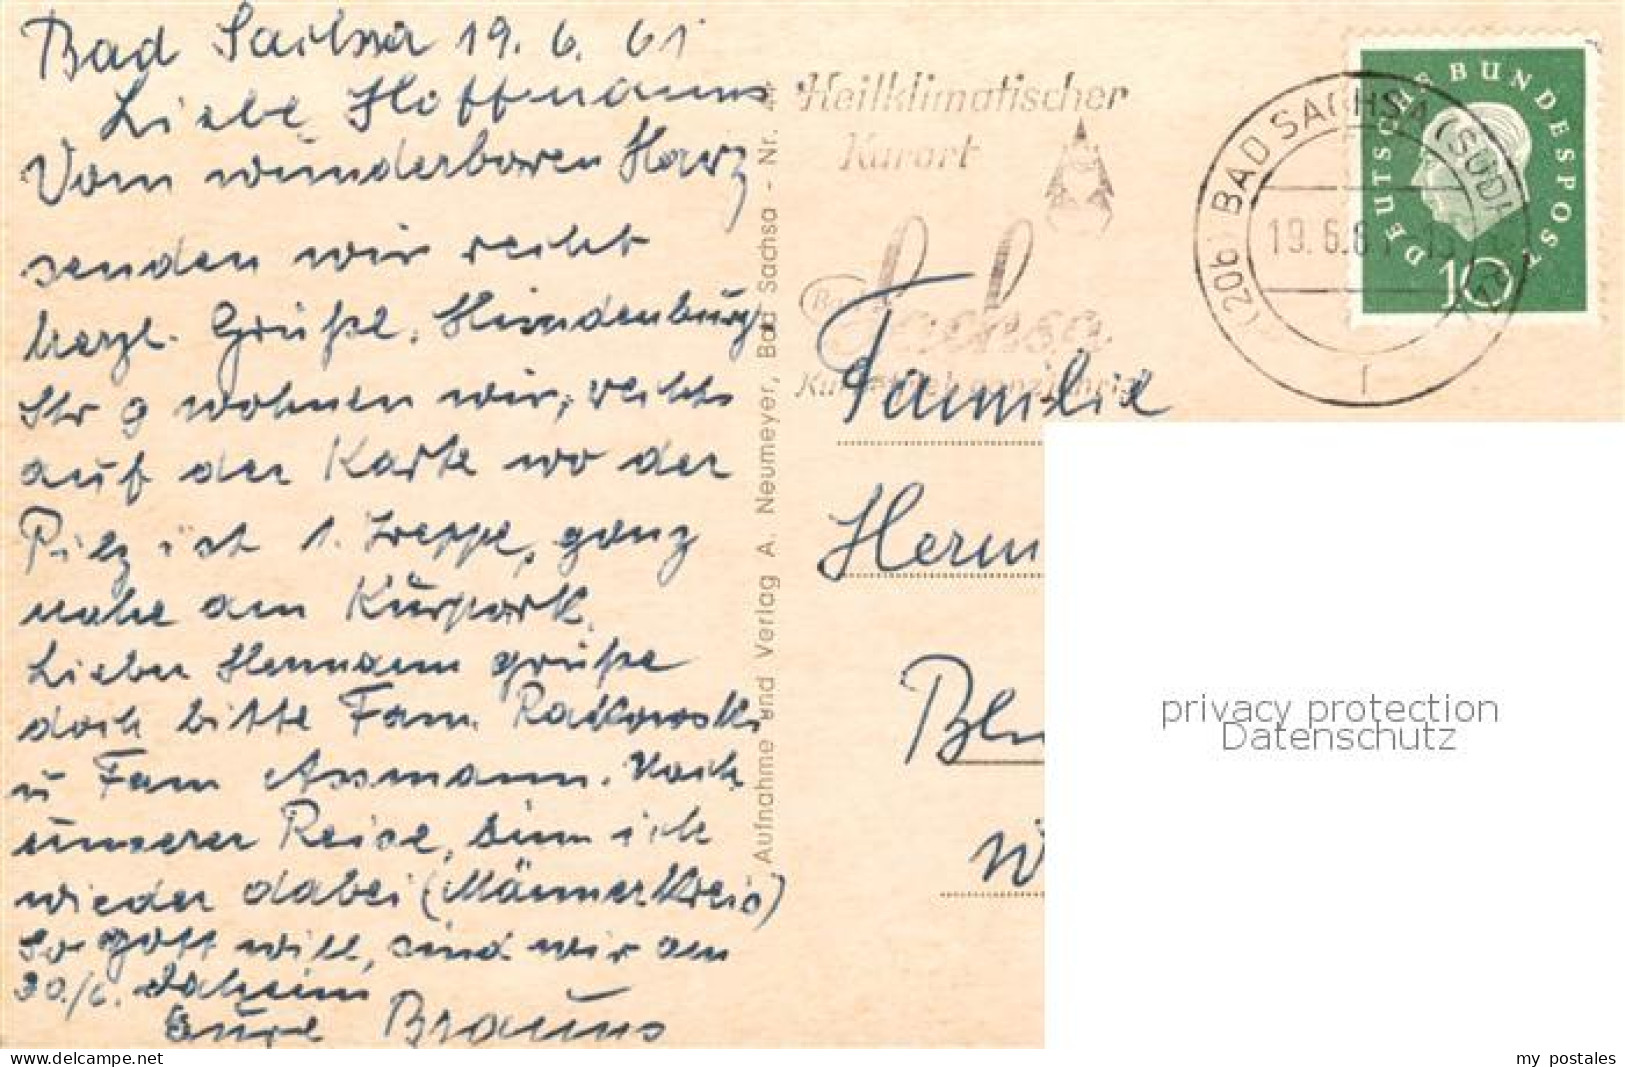 Bad Sachsa 19. 6. 61
Liebe Hoffmanns
Vom wunderbaren Harz
senden wir recht
herzl. Grüße. Hindenburg
Str 9 wohnen wir, rechts
auf der Karte wo der
Pilz ist 1. Treppe, ganz
nahe am Kurpark.
Lieber Hermann grüße
doch bitte Fam. Raikowski
u Fam Assmann. Nach
unserer Reise, bin ich
wieder dabei (Männerkreis)
So Gott will, sind wir am
30./6. daheim
Eure Brauns
Aufnahme und Verlag A. Neumeyer, Bad Sachsa - Nr.
Heilklimatischer
Kurort
Bad
Sachsa
(20b) BAD SACHSA (SÜDHARZ)
19. 6. 61
f
DEUTSCHE BUNDESPOST
10
Familie
Herm
Blu
W
privacy protection
Datenschutz
my postales